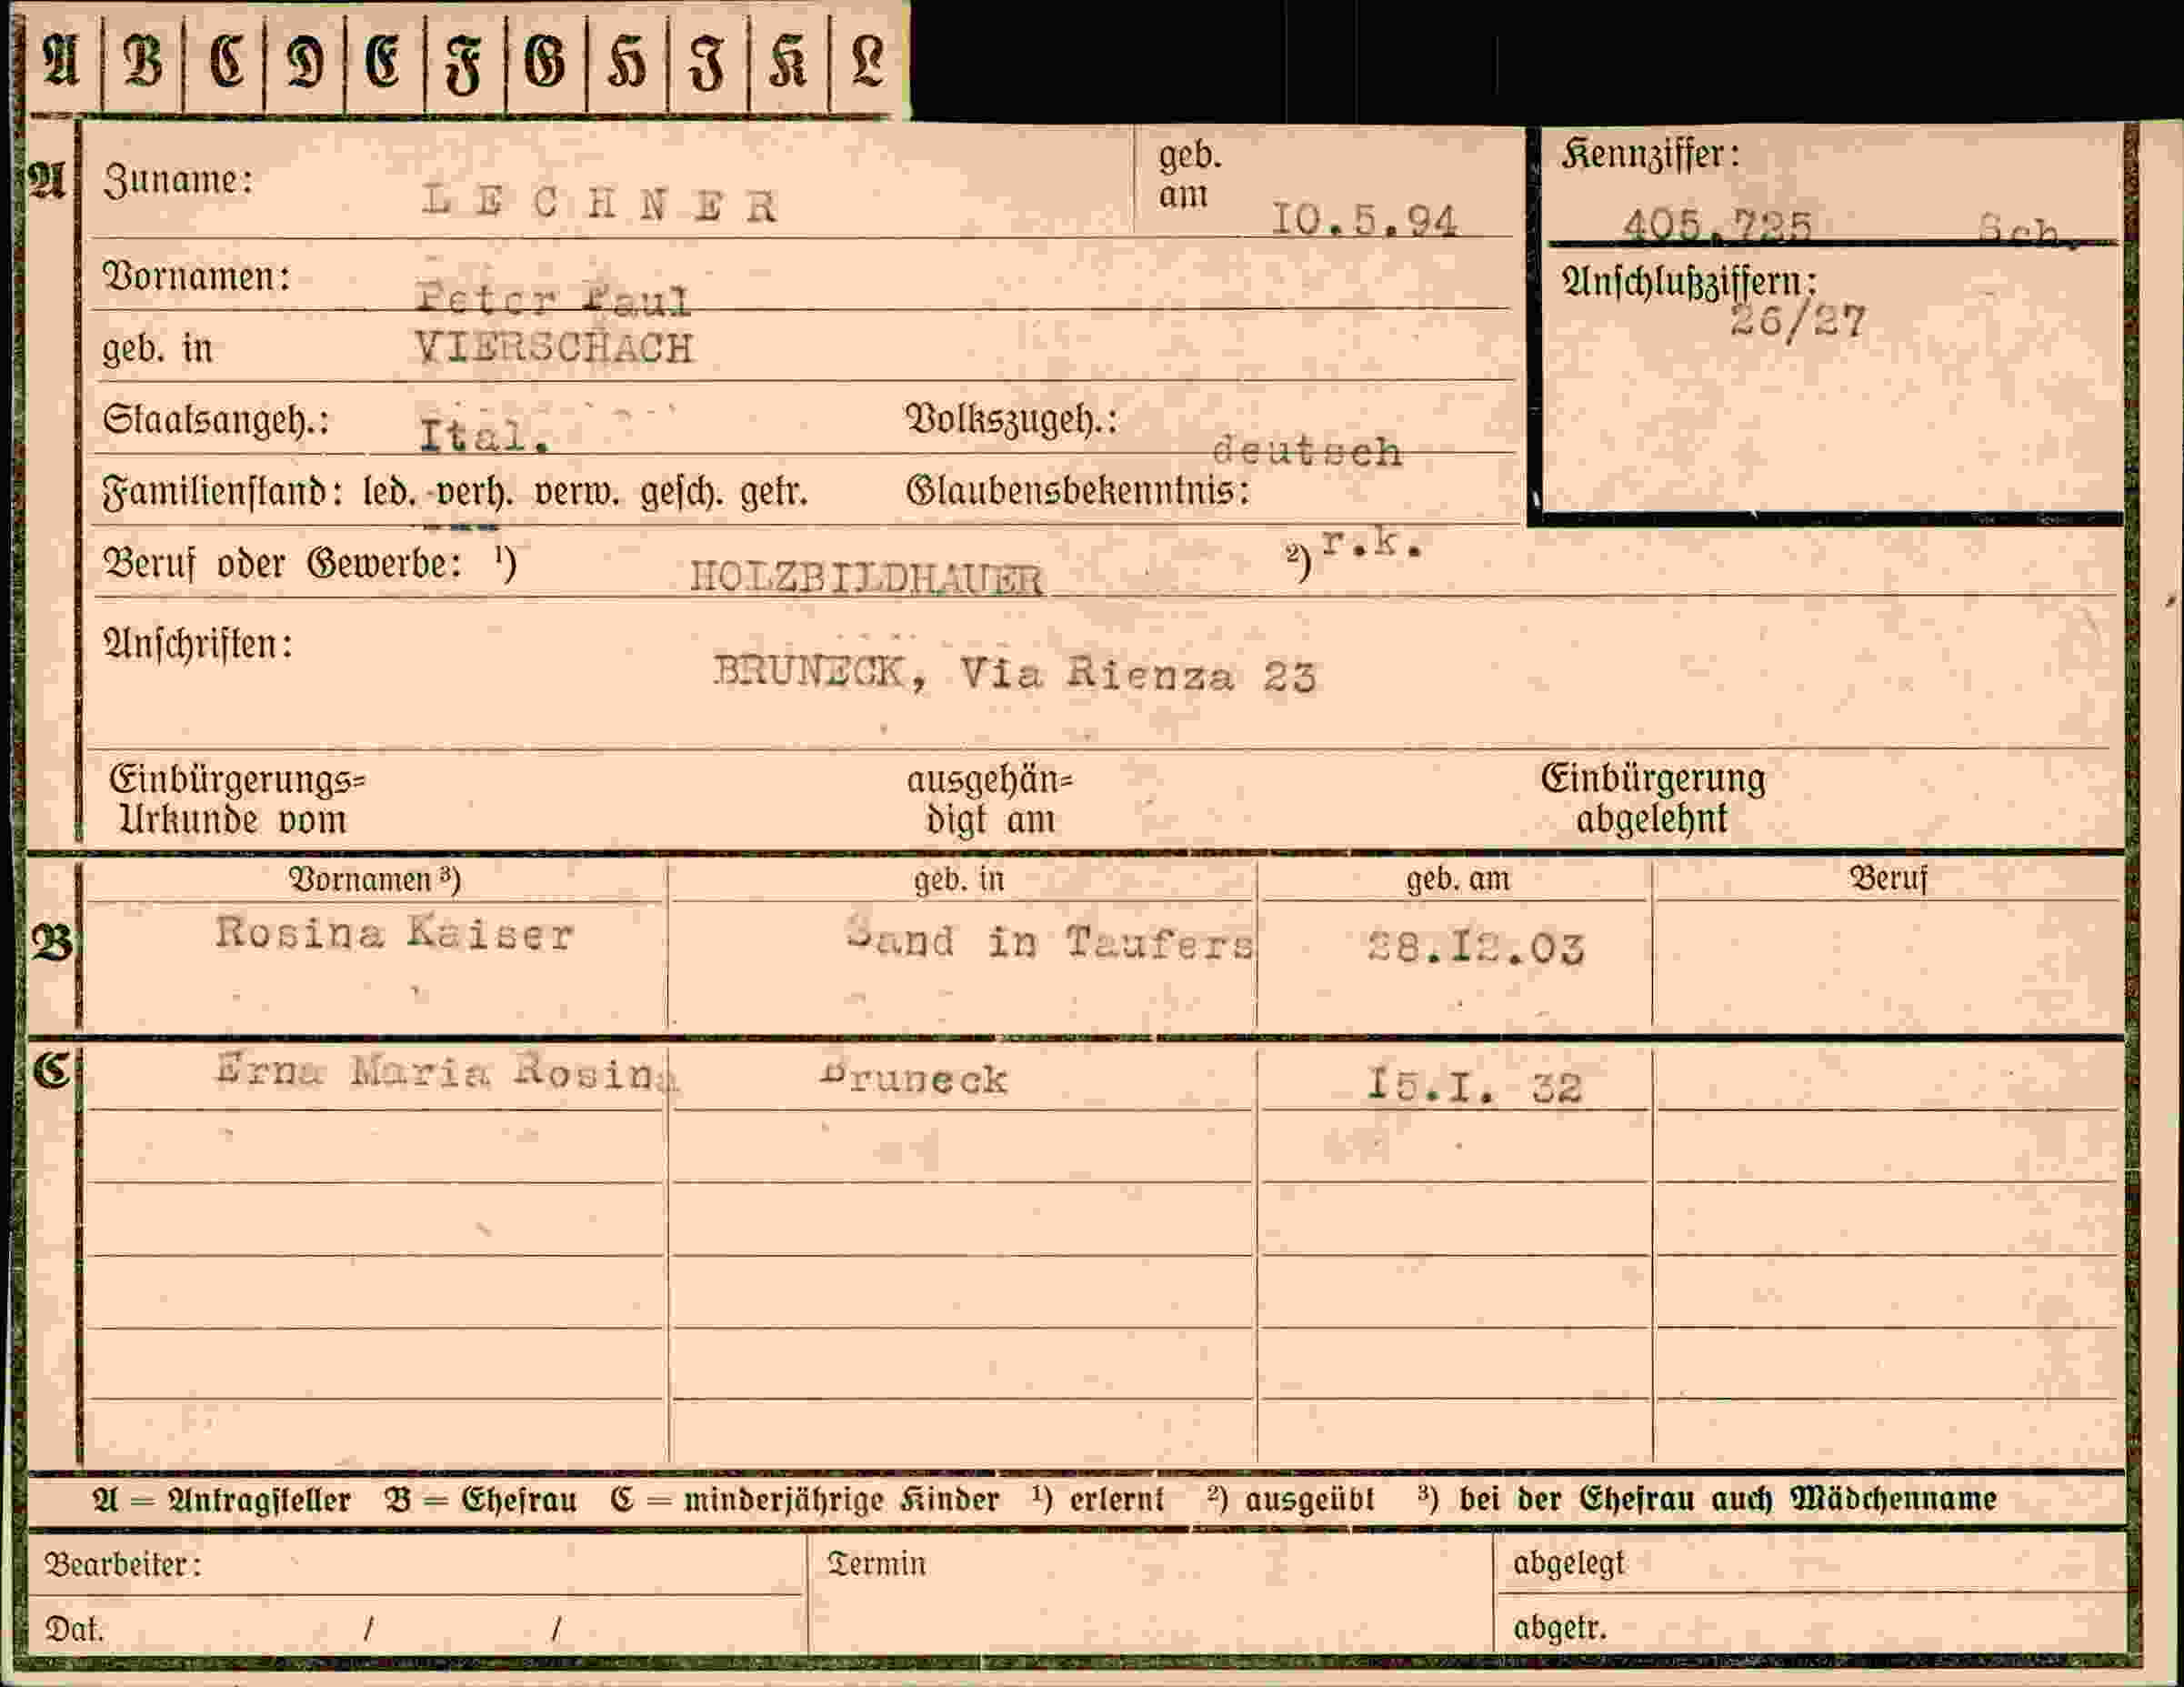 A B C D E F G H I K L
A Zuname: LECHNER geb. am 10.5.94 Kennziffer: 405.725 Sch.
Vornamen: Peter Paul Anschlußziffern: 26/27
geb. in VIERSCHACH
Staatsangeh.: Ital. Volkszugeh.: deutsch
Familienstand: led. verh. verw. gesch. getr. Glaubensbekenntnis: r.k.
Beruf oder Gewerbe: ¹) HOLZBILDHAUER ²)
Anschriften: BRUNECK, Via Rienza 23
Einbürgerungs= ausgehän= Einbürgerung
Urkunde vom digt am abgelehnt
Vornamen ³) geb. in geb. am Beruf
B Rosina Kaiser Sand in Taufers 28.I2.03
C Erna Maria Rosina Bruneck I5.I. 32
A = Antragsteller B = Ehefrau C = minderjährige Kinder ¹) erlernt ²) ausgeübt ³) bei der Ehefrau auch Mädchenname
Bearbeiter: Termin abgelegt
Dat. / / abgetr.